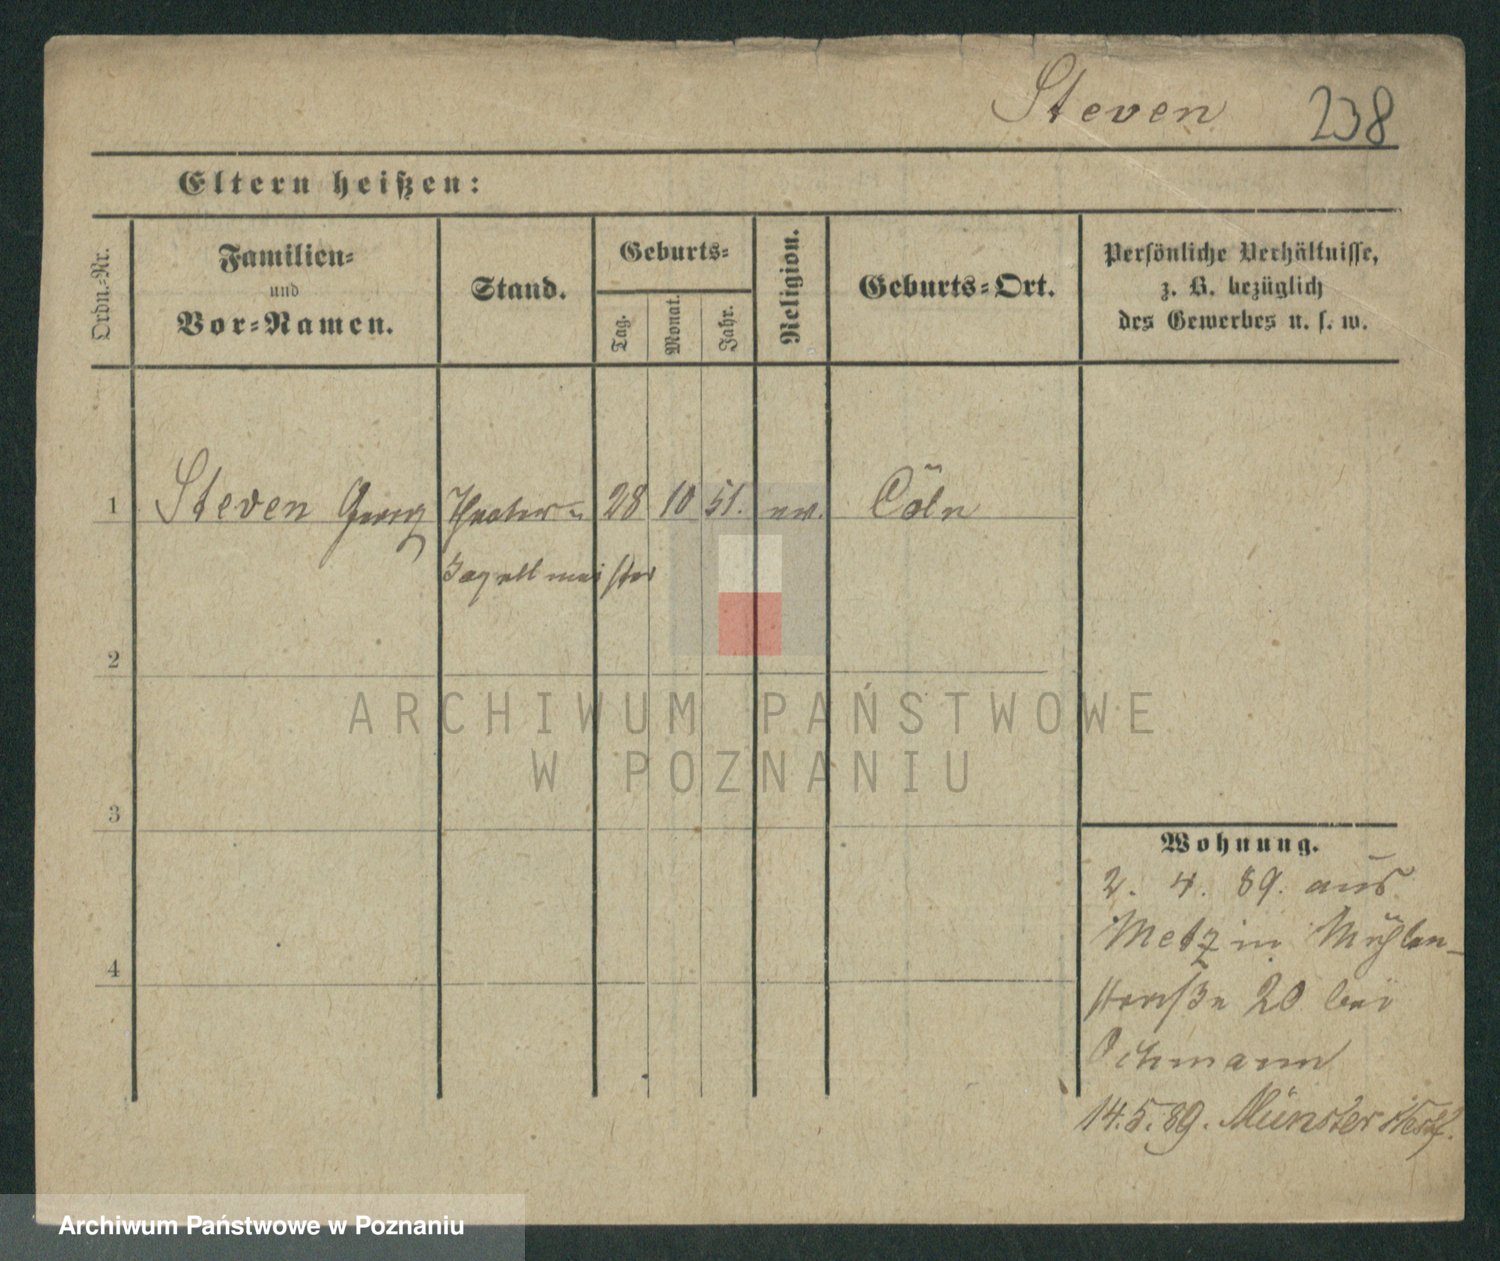 Steven 238
Eltern heißen:
Ordn.-Nr.
Familien-
und
Vor-Namen.
Stand.
Geburts-
Tag.
Monat.
Jahr.
Religion.
Geburts-Ort.
Persönliche Verhältnisse,
z. B. bezüglich
des Gewerbes u. s. w.
1 Steven Georg Theater- 28 10 51. ev. Cöln
Kapellmeister
2
3
4
Wohnung.
2. 4. 89. aus
Metz in Mühlen-
straße 20 bei
Ochmann
14.5.89. Münster Westf.
ARCHIWUM PAŃSTWOWE
W POZNANIU
Archiwum Państwowe w Poznaniu